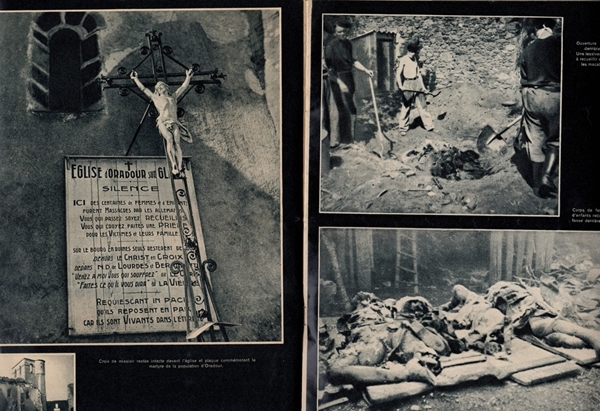 EGLISE d'ORADOUR SUR GL
SILENCE
ICI DES CENTAINES DE FEMMES ET d'ENFANTS
FURENT MASSACRÉS PAR LES ALLEMANDS
VOUS QUI PASSEZ SOYEZ RECUEILLIS
VOUS QUI CROYEZ FAITES UNE PRIÈ
POUR LES VICTIMES ET LEURS FAMILLES
SUR LE BOURG EN RUINES SEULS RESTÈRENT DE
DEHORS LE CHRIST EN CROIX
DEDANS N.D DE LOURDES ET BERNADETTE
"VENEZ A MOI VOUS QUI SOUFFREZ" DIT LE CHRIST
"FAITES CE QU'IL VOUS DIRA" DIT LA VIERGE
REQUIESCANT IN PACE
QU'ILS REPOSENT EN PAIX
CAR ILS SONT VIVANTS DANS L'ÉTER
Croix de mission restée intacte devant l'église et plaque commémorant le
martyre de la population d'Oradour.
Ouverture
derrière
Une
à recueillir
les
Corps de
d'enfants
fosse derrière